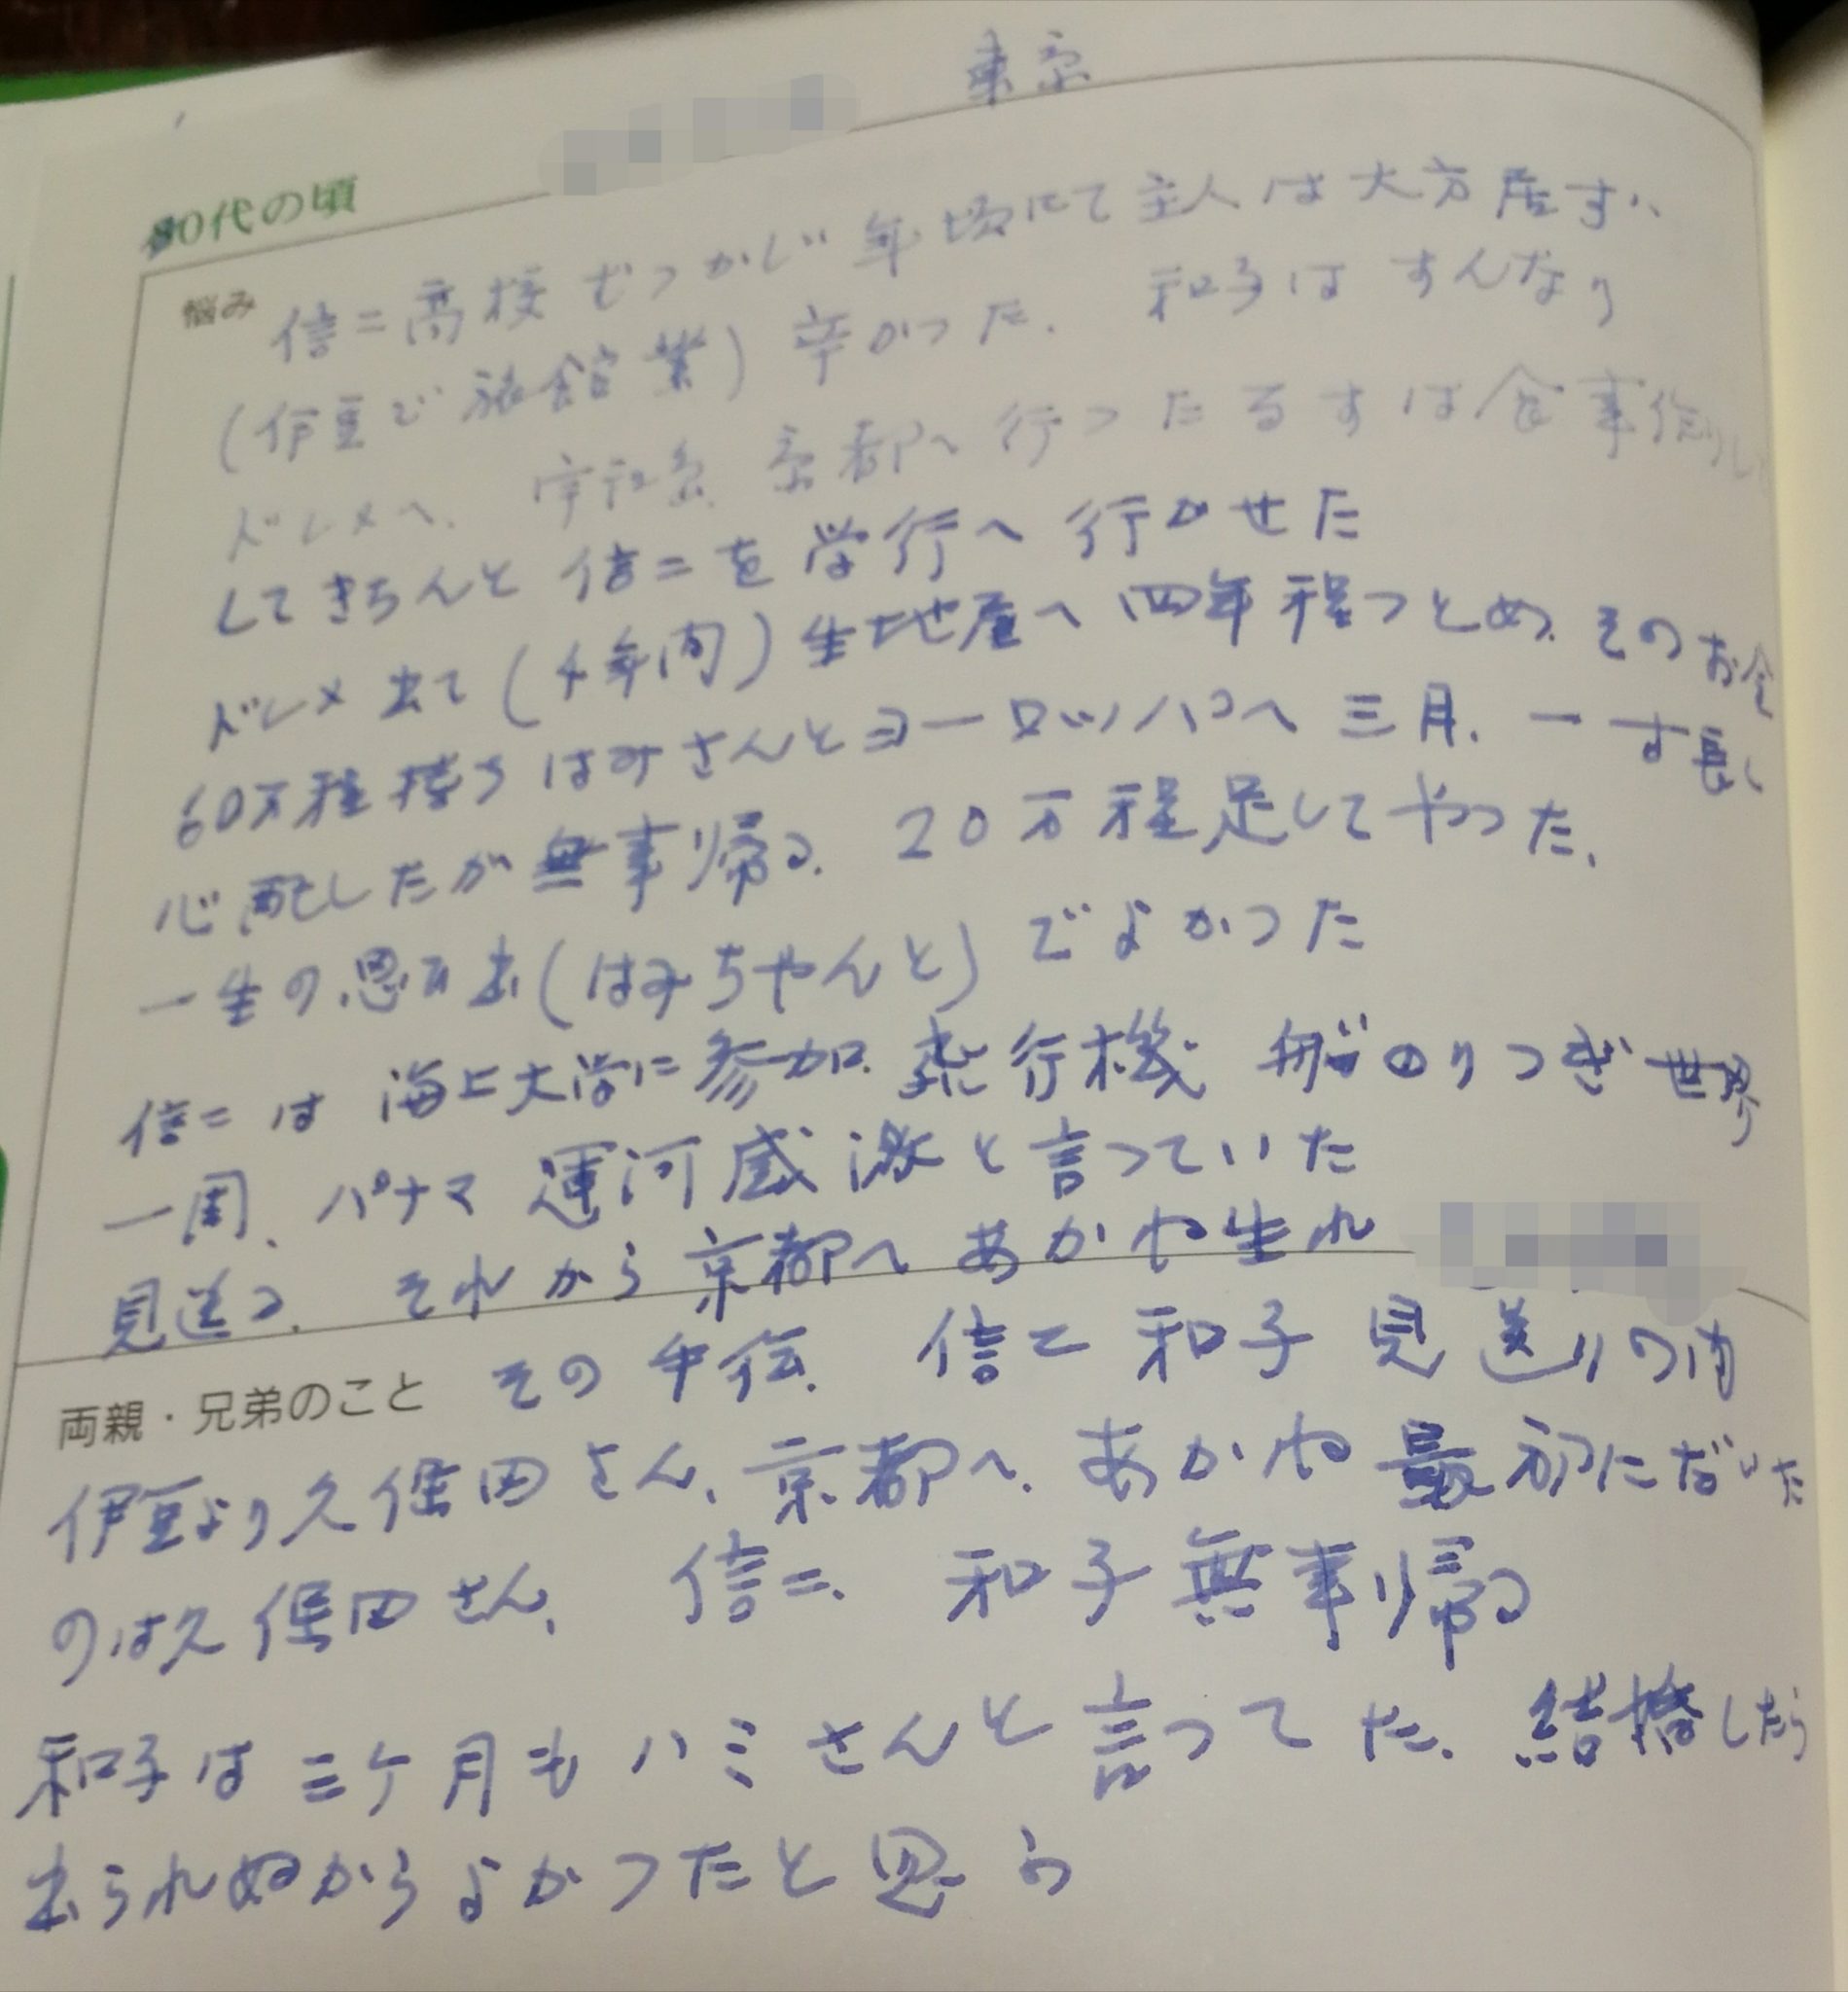 東京
80代の頃
悩み 信二高校むつかしい年頃にて主人は大方居ず、
(伊豆で旅館業) 辛かった. 和子はすんなり
ドレメへ. 京都へ行ったるすは食事作りし
してきちんと信二を学行へ行かせた
ドレメ出て(4年間)生地屋へ四年程つとめ、そのお金
60万程持ちはみさんとヨーロッパへ三月.一寸長く
心配したが無事帰る. 20万程足してやった.
一生の思い出(はみちゃんと)でよかった
信二は海上大学に参加.飛行機 船のりつぎ世界
一周、パナマ運河感激と言っていた
見送る. それから京都へあかね生れ
両親・兄弟のこと その手伝. 信二和子見送りの内
伊豆より久保田さん、京都へ.あかね最初にだいた
のは久保田さん. 信二.和子無事帰る
和子は三ケ月もハミさんと言ってた.結婚したら
出られぬからよかったと思う